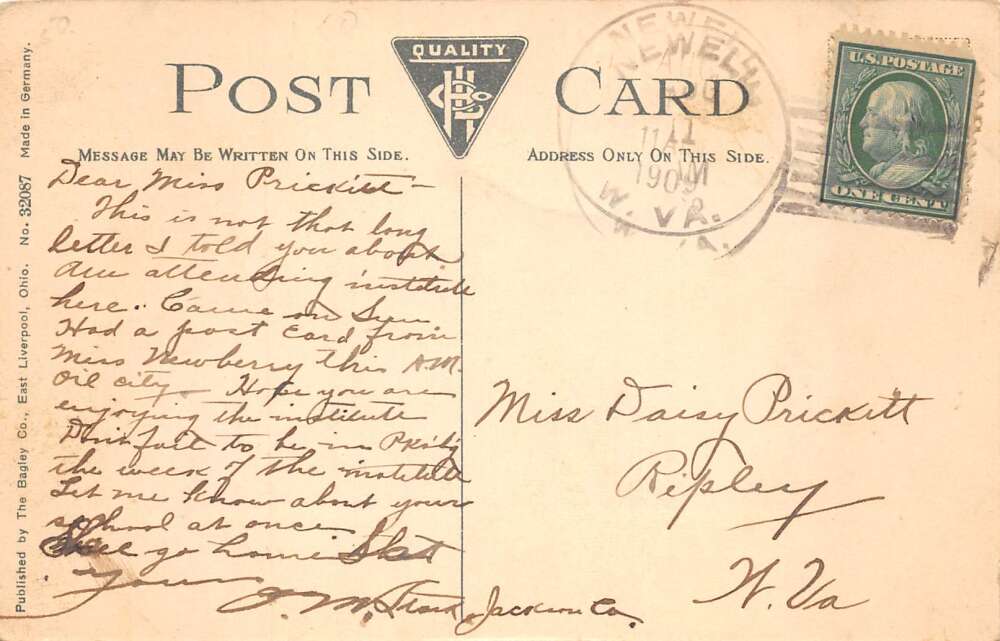 POST CARD
QUALITY
MESSAGE MAY BE WRITTEN ON THIS SIDE.
ADDRESS ONLY ON THIS SIDE.
NEWELL
1909
W. VA.
U.S. POSTAGE
ONE CENT
Published by The Bagley Co., East Liverpool, Ohio. No. 32087 Made in Germany.
Dear Miss Prickitt –
This is not that long
letter I told you about
Am attending institute
here. Came on Sun
Had a post card from
Miss Newberry this A.M.
Oil city – Hope you are
enjoying the institute
Don't fail to be in
the week of the institute
Let me know about your
school at once
Shall go home Sat
Yours
J. M.
Miss Daisy Prickitt
Ripley
W. Va
Jackson Co.